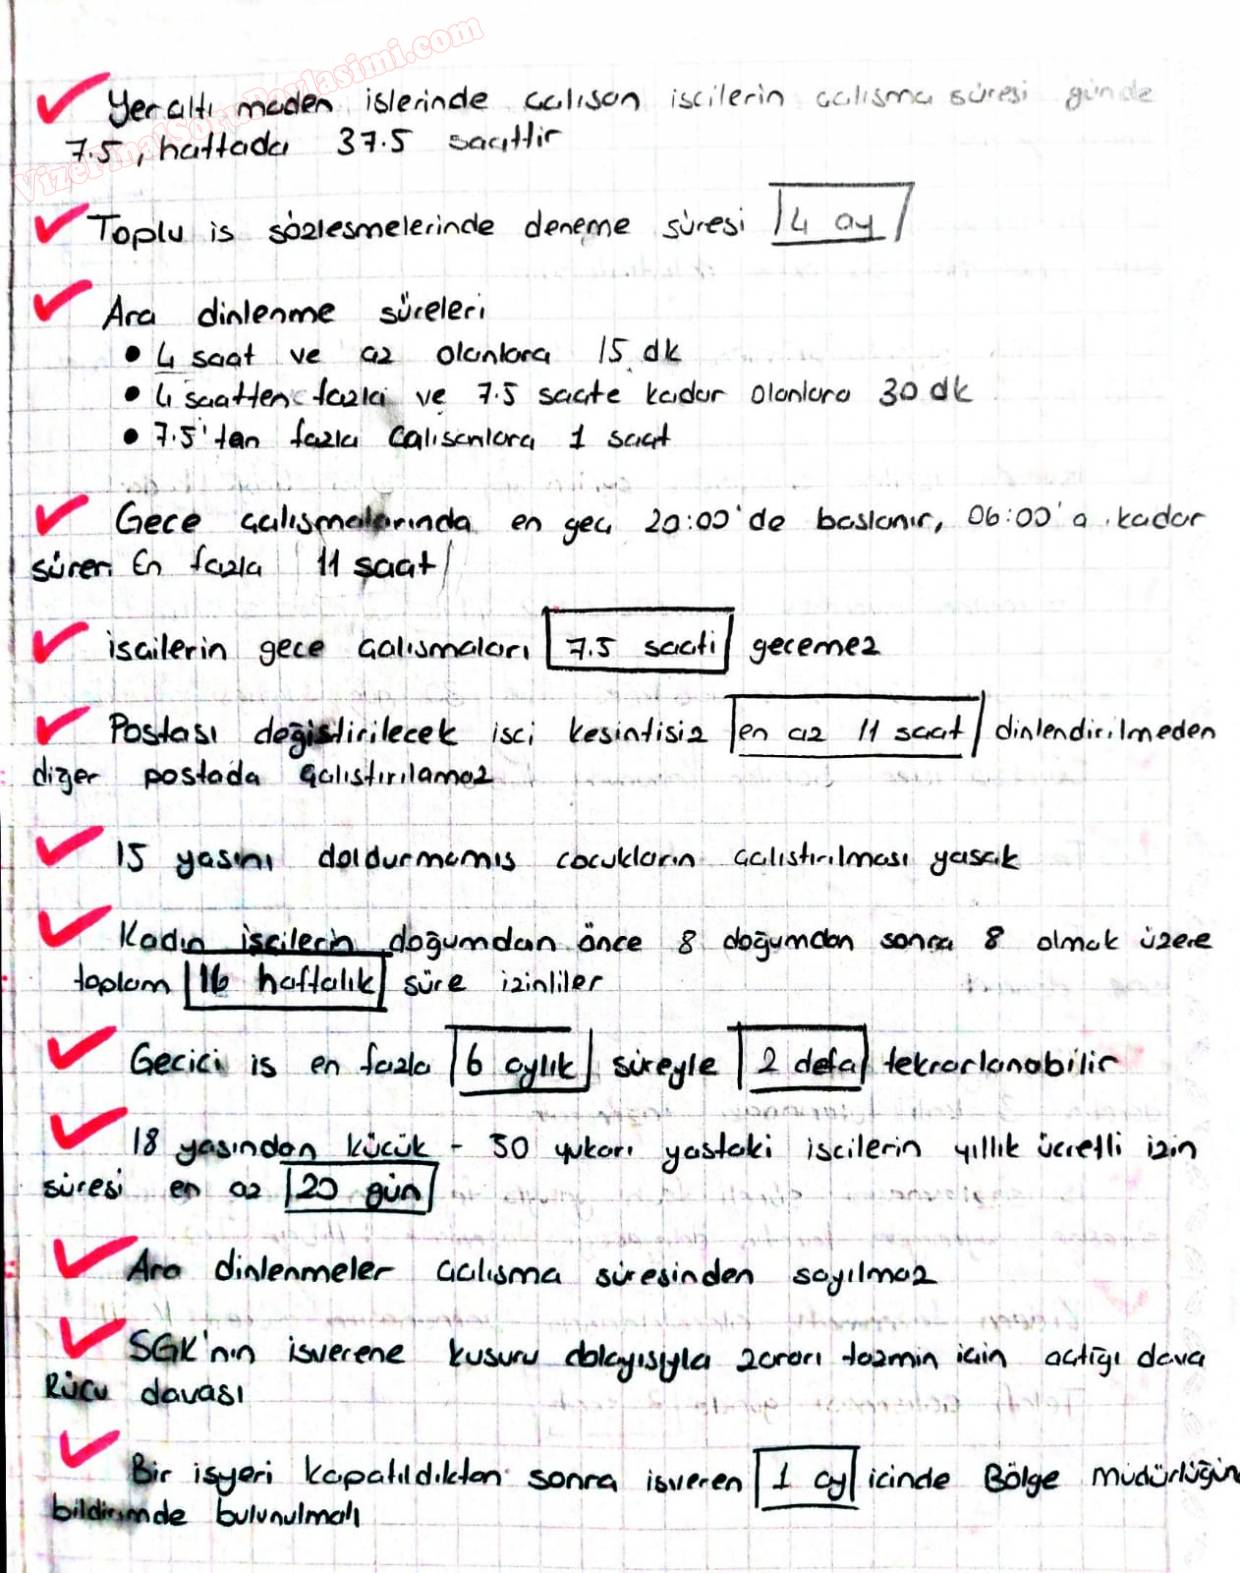 VizeFinalSoruPaylasimi.com
Yer altı maden islerinde calısan iscilerin calısma süresi günde
7.5, haftada 37.5 saattir
Toplu is sözlesmelerinde deneme süresi 4 ay
Ara dinlenme süreleri
• 4 saat ve az olanlara 15 dk
• 4 saatten fazla ve 7.5 saate kadar olanlara 30 dk
• 7.5'tan fazla calısanlara 1 saat
Gece calısmalarında en gec 20:00'de baslanır, 06:00'a kadar
sürer. En fazla 11 saat
iscilerin gece calısmaları 7.5 saati gecemez
Postası değistirilecek isci kesintisiz en az 11 saat dinlendirilmeden
diğer postada calıstırılamaz
15 yasını doldurmamıs cocukların calıstırılması yasak
Kadın iscilerin doğumdan önce 8 doğumdan sonra 8 olmak üzere
toplam 16 haftalık süre izinliler
Gecici is en fazla 6 aylık süreyle 2 defa tekrarlanabilir
18 yasından kücük - 50 yukarı yastaki iscilerin yıllık ücretli izin
süresi en az 20 gün
Ara dinlenmeler calısma süresinden sayılmaz
SGK'nın isverene kusuru dolayısıyla zararı tazmin icin actığı dava
Rücu davası
Bir isyeri kapatıldıktan sonra isveren 1 ay icinde Bölge müdürlüğün
bildirimde bulunulmalı